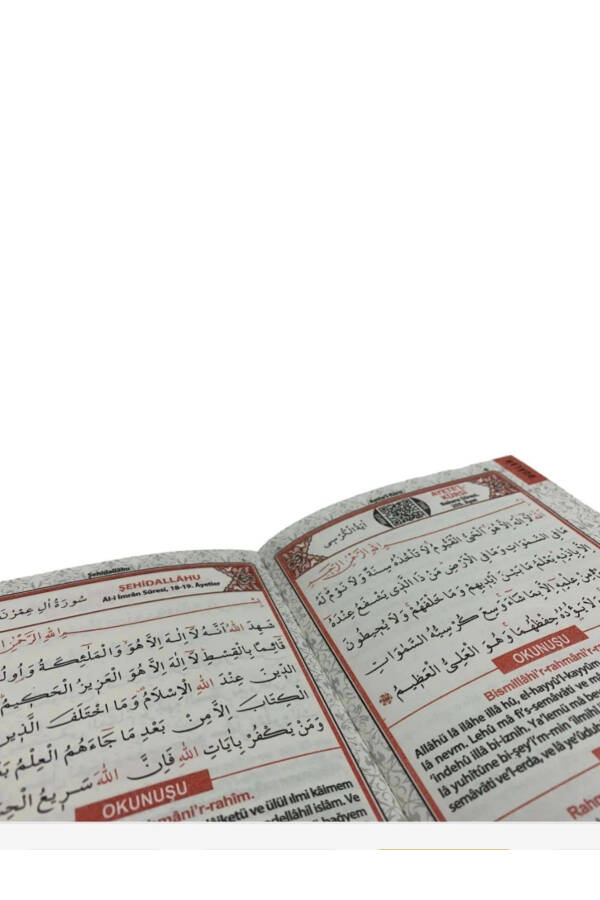 Şehidallâhu
ŞEHİDALLÂHU
Al-i İmrân Sûresi, 18-19. Âyetler
سُورَةُ اٰلِ عِمْرٰنَ
شَهِدَ اللّٰهُ اَنَّهُ لَٓا اِلٰهَ اِلَّا هُوَ وَالْمَلٰٓئِكَةُ وَاُولُوا
قَٓائِمًا بِالْقِسْطِ لَٓا اِلٰهَ اِلَّا هُوَ الْعَزٖيزُ الْحَكٖيمُ
الدّٖينَ عِنْدَ اللّٰهِ الْاِسْلَامُ وَمَا اخْتَلَفَ الَّذٖينَ
الْكِتَابَ اِلَّا مِنْ بَعْدِ مَا جَٓاءَهُمُ الْعِلْمُ
وَمَنْ يَكْفُرْ بِاٰيَاتِ اللّٰهِ فَاِنَّ اللّٰهَ سَرٖيعُ
OKUNUŞU
ve ülül ılmi kâimem
islâm. Ve
bağyem
Ayete'l Kürsi
AYETE'L
KÜRSİ
Bakara Sûresi,
255. Âyet
اٰيَةُ الْكُرْسِى
اَللّٰهُ لَٓا اِلٰهَ اِلَّا هُوَ الْحَىُّ الْقَيُّومُ لَا تَأْخُذُهُ سِنَةٌ وَلَا نَوْمٌ لَهُ
مَا فِى السَّمٰوَاتِ وَمَا فِى الْاَرْضِ مَنْ ذَا الَّذٖى يَشْفَعُ عِنْدَهُ
اِلَّا بِاِذْنِهٖ يَعْلَمُ مَا بَيْنَ اَيْدٖيهِمْ وَمَا خَلْفَهُمْ وَلَا يُحٖيطُونَ
مِنْ عِلْمِهٖٓ اِلَّا بِمَا شَٓاءَ وَسِعَ كُرْسِيُّهُ السَّمٰوَاتِ
وَلَا يَؤُ۫دُهُ حِفْظُهُمَا وَهُوَ الْعَلِىُّ الْعَظٖيمُ
OKUNUŞU
Bismillâhi'r-rahmâni'r-
Allâhü lâ ilâhe illâ hû, el-hayyü'l-kayyûm
lâ nevm. Lehû mâ fi's-semâvâti ve m
'indehû illâ bi-iznih. Ya'lemü mâ be
lâ yuhîtûne bi-şey'i'm-min 'ilmihî
semâvâti ve'l-erda, ve lâ ye'ûdüh